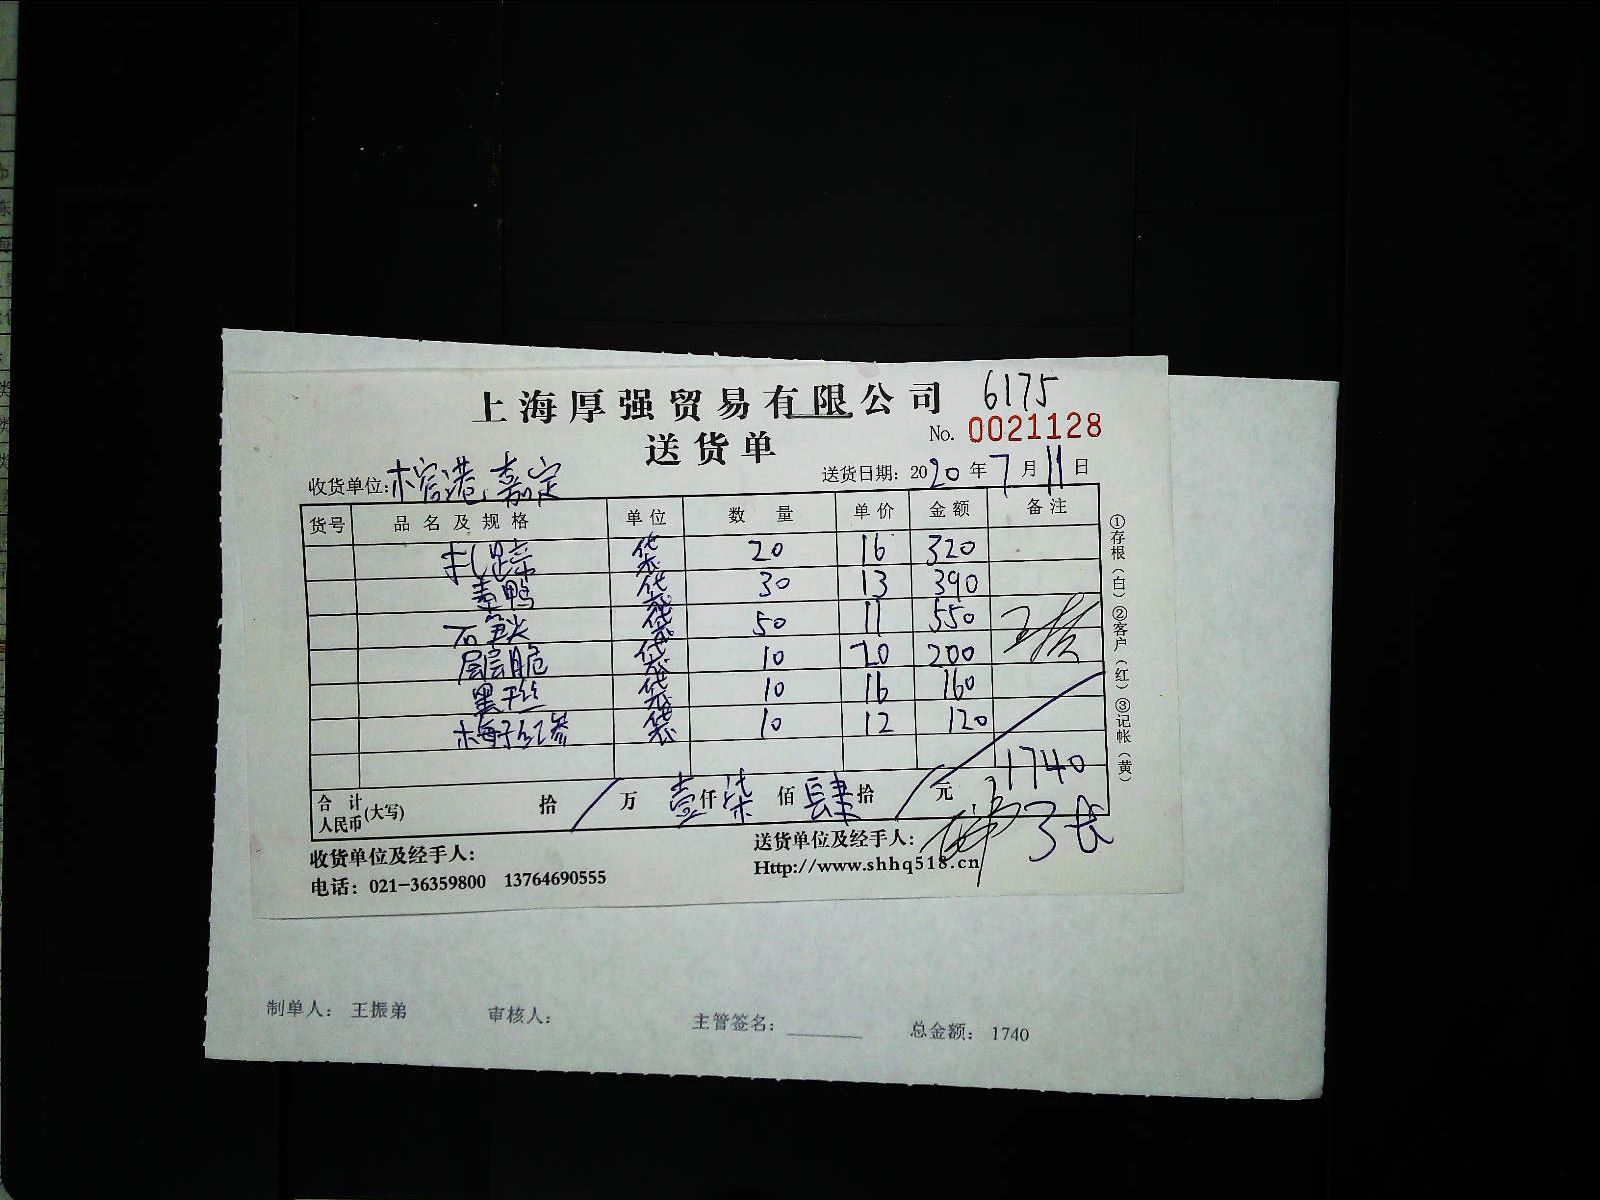 上海厚强贸易有限公司 6175
送货单 No. 0021128
收货单位: 嘉定 送货日期: 2020年7月11日
货号 品名及规格 单位 数量 单价 金额 备注
扎蹄 袋 20 16 320
素鸭 袋 30 13 390
石笋尖 袋 50 11 550
层层脆 袋 10 20 200
黑干丝 袋 10 16 160
梅子红参 袋 10 12 120
1740
合计人民币(大写) 拾 / 万 壹仟柒佰肆拾 / 元
收货单位及经手人: 送货单位及经手人:
电话: 021-36359800 13764690555 Http://www.shhq518.cn
①存根(白)②客户(红)③记帐(黄)
制单人: 王振弟 审核人: 主管签名: 总金额: 1740